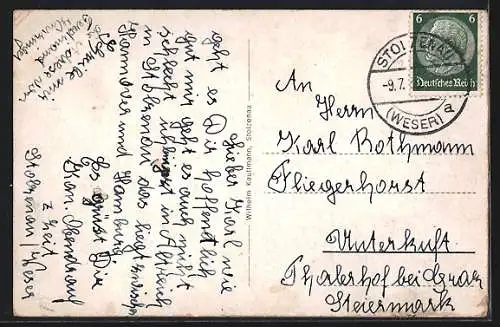 Lieber Karl wie
geht es Dir hoffentlich
gut mir geht es auch nicht
schlecht in
in Stolzenau das liegt zwischen
Hannover und Hamburg
Es grüsst Dir
Stolzenau / Weser
z Zeit
Schreibe mir
Wilhelm Kaufmann, Stolzenau
6 6
Deutsches Reich
STOLZENAU
-9.7.
(WESER)
a
An
Herrn
Karl Rothmann
Fliegerhorst
Unterkunft
Thalerhof bei Graz
Steiermark